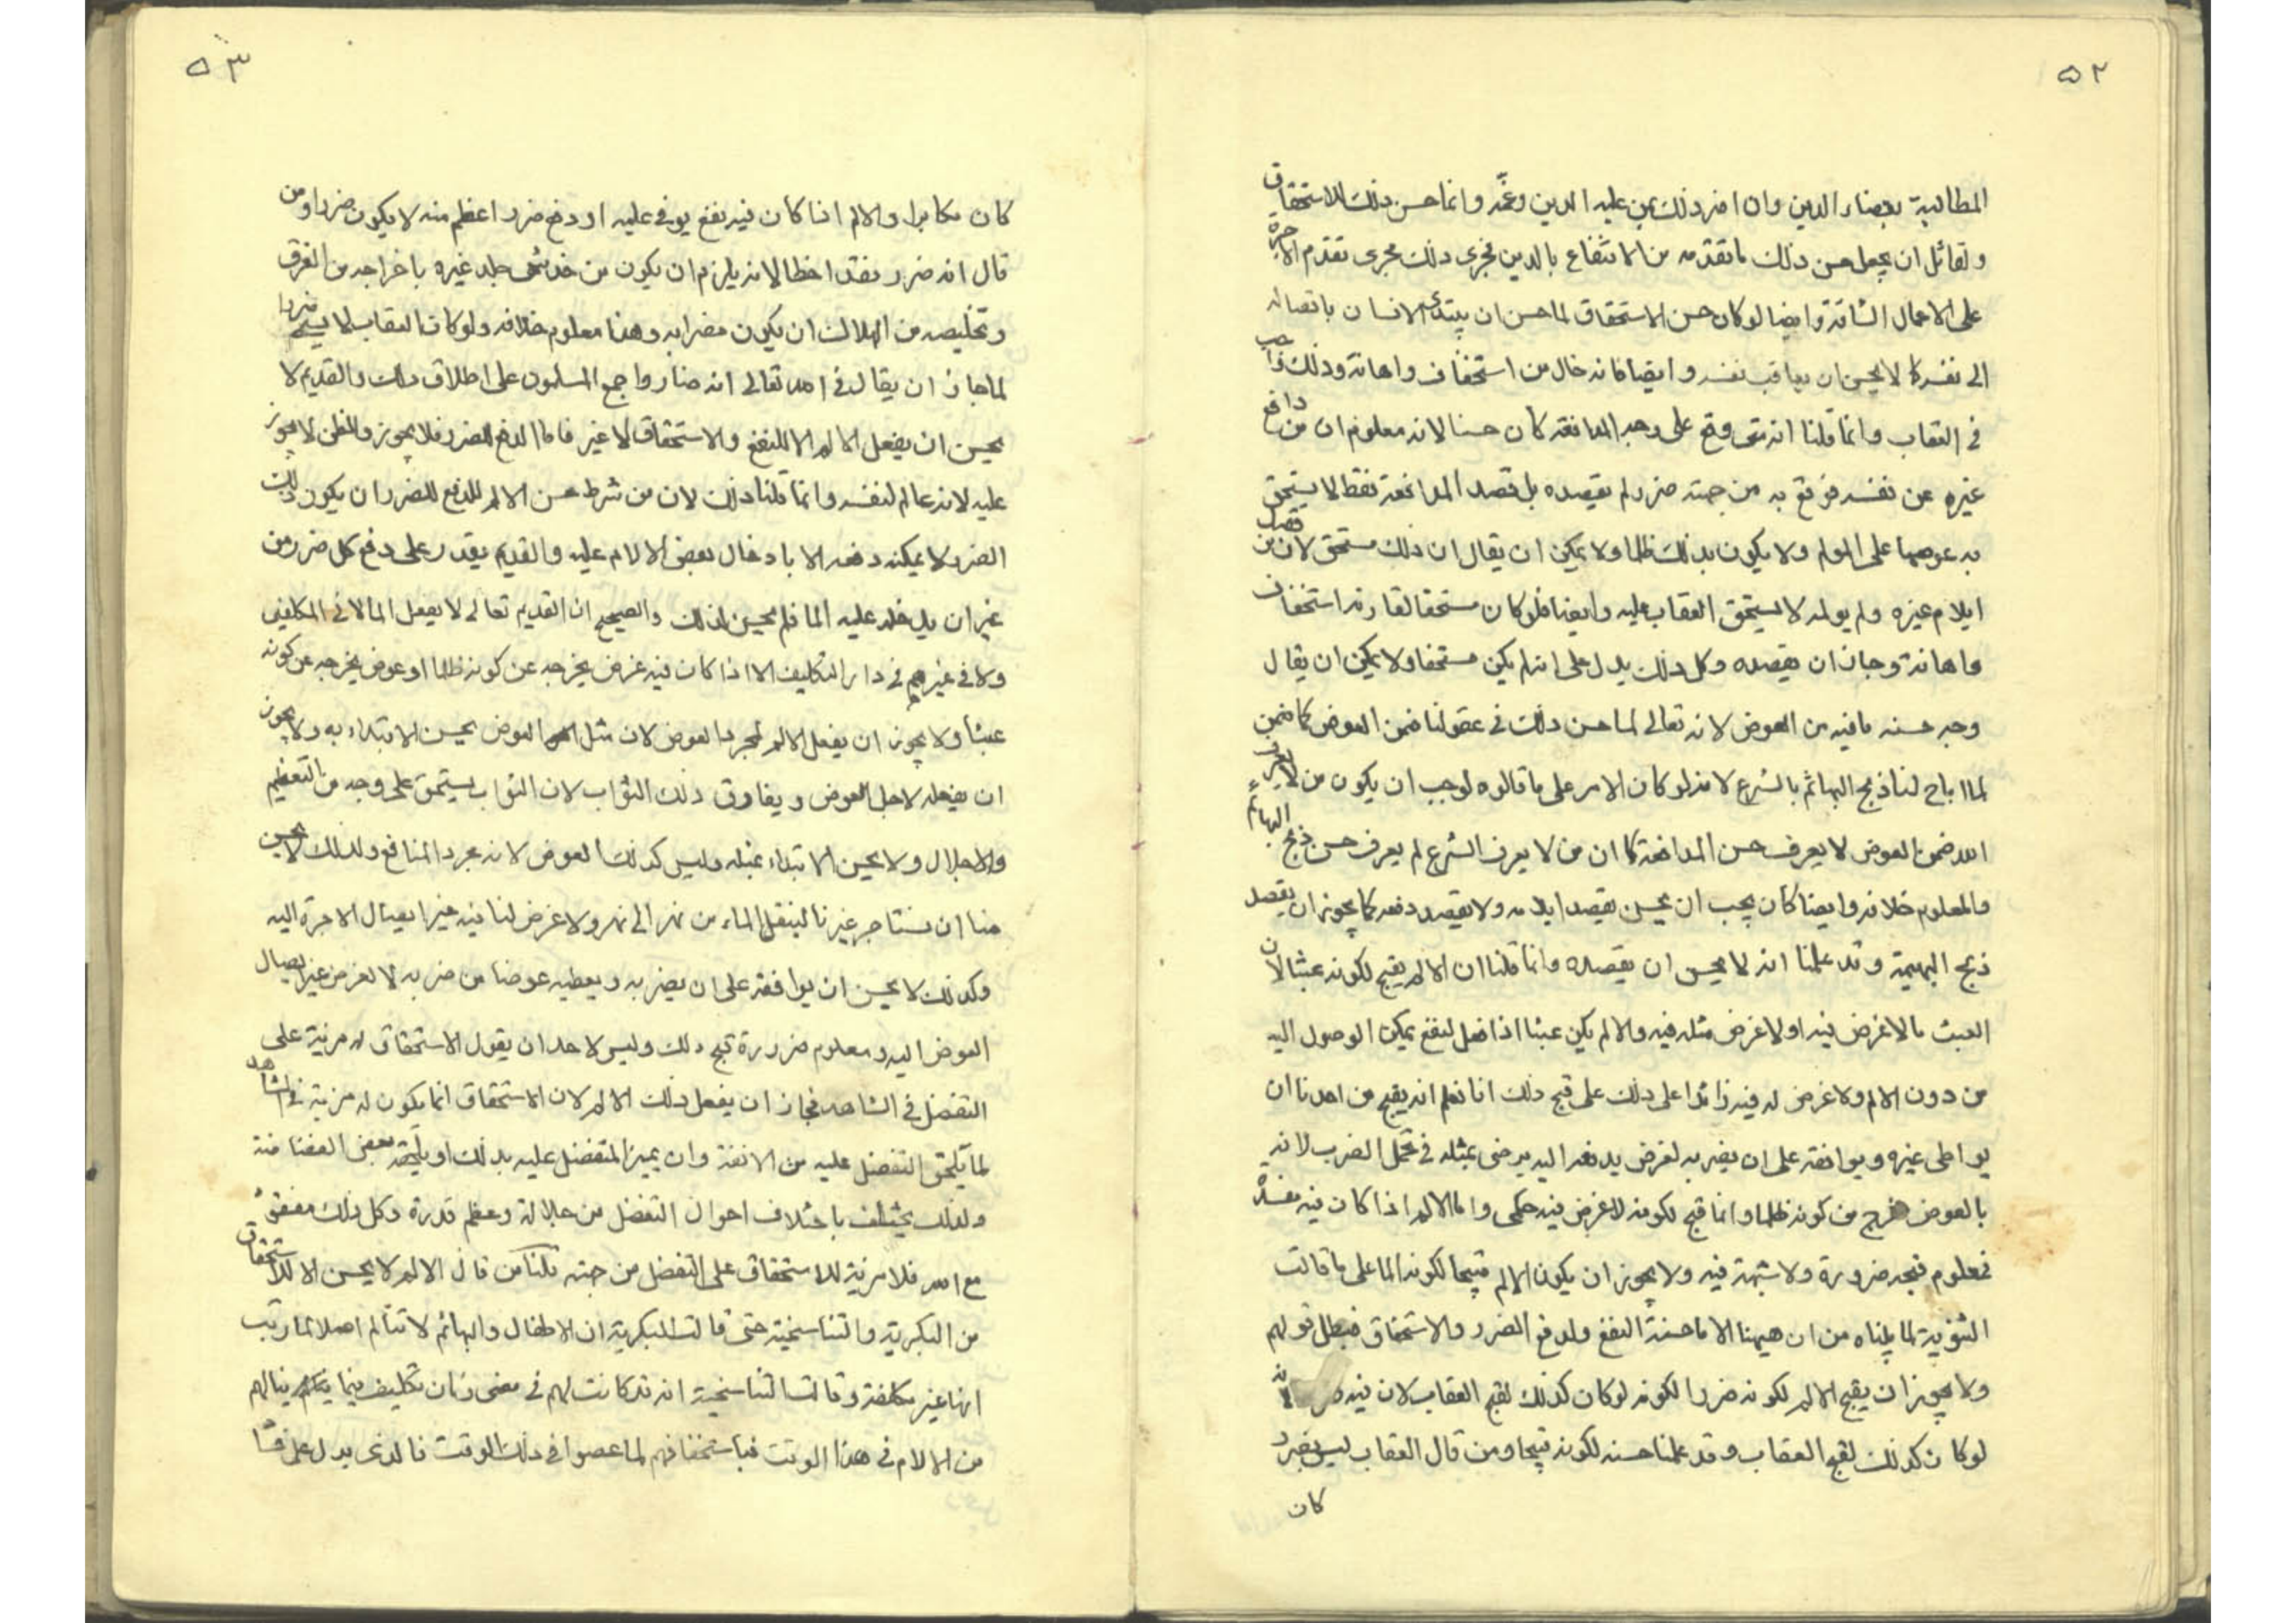 ٥٢
المطالبة بقضاء الدين وان اضر ذلك بمن عليه الدين وغمّه وانما حسن ذلك للاستحقاق
ولقائل ان يجعل حسن ذلك ما تقدمه من الانتفاع بالدين فجرى ذلك مجرى تقدم الاجرة
على الاعمال الشاقة وايضا لو كان حسن الاستحقاق لما حسن ان يبتدئ الانسان بايصاله
الى نفسه كما لا يحسن ان يعاقب نفسه وايضا فانه خال من استخفاف واهانة وذلك واجب
في العقاب وانما قلنا انه متى وقع على وجه المدافعة كان حسنا لانه معلوم ان من دافع
غيره عن نفسه فوقع به من جهته ضرر لم يقصده بل قصد المدافعة فقط لا يستحق
به عوضا على المولم ولا يكون بذلك ظلما ولا يمكن ان يقال ان ذلك مستحق لان من قصد
ايلام غيره ولم يولمه لا يستحق العقاب عليه وايضا فلو كان مستحقا لقارنه استخفاف
واهانة وجاز ان يقصده وكل ذلك يدل على انه لم يكن مستحقا ولا يمكن ان يقال
وجه حسنه ما فيه من العوض لانه تعالى لما حسن ذلك في عقولنا ضمن العوض كما ضمن
لما اباح لنا ذبح البهائم بالشرع لانه لو كان الامر على ما قالوه لوجب ان يكون من لا يعرف ان
الله ضمن العوض لا يعرف حسن المدافعة كما ان من لا يعرف الشرع لم يعرف حسن ذبح البهائم
والمعلوم خلافه وايضا كان يجب ان يحسن يقصد ايلامه ولا يقصد دفعه كما يجوز ان يقصد
ذبح البهيمة وقد علمنا انه لا يحسن ان يقصده وانما قلنا ان الالم يقبح لكونه عبثا لان
العبث ما لا غرض فيه او لا غرض مثله فيه والالم يكن عبثا اذا فعل لنفع يمكن الوصول اليه
من دون الالم ولا غرض له فيه زائدا على ذلك على قبح ذلك انا نعلم انه يقبح من احدنا ان
يواطى غيره ويوافقه على ان يضربه لغرض يدفعه اليه يرضى بمثله في تحمل الضرب لانه
بالعوض خرج من كونه ظلما وانما قبح لكونه لا غرض فيه حكمى واما الالم اذا كان فيه مفسدة
فمعلوم قبحه ضرورة ولا شبهة فيه ولا يجوز ان يكون الالم قبيحا لكونه الما على ما قالت
الثنوية لما بيناه من ان هيهنا الاما حسنة النفع ولدفع الضرر والاستحقاق فبطل قولهم
ولا يجوز ان يقبح الالم لكونه ضررا لكونه لو كان كذلك لقبح العقاب لان فيه ضرر لانه
لو كان كذلك لقبح العقاب وقد علمنا حسنه لكونه قبيحا ومن قال العقاب ليس بضرر
كان
٥٣
كان مكابرا والالم اذا كان فيه نفع يوفى عليه او دفع ضرر اعظم منه لا يكون ضررا ومن
قال انه ضرر فقد اخطا لانه يلزم ان يكون من خدش جلد غيره باخراجه من الغرق
وتخليصه من الهلاك ان يكون مضرا به وهذا معلوم خلافه ولو كان العقاب لا يسمى ضررا
لما جاز ان يقال في الله تعالى انه ضار واجمع المسلمون على اطلاق ذلك والقديم لا
يحسن ان يفعل الالم الا للنفع والاستحقاق لا غير فاما لدفع الضرر فلا يجوز والظن لا يجوز
عليه لانه عالم لنفسه وانما قلنا ذلك لان من شرط حسن الالم للدفع للضرر ان يكون ذلك
الضرر لا يمكنه دفعه الا بادخال بعض الالام عليه والقديم يقدر على دفع كل ضرر من
غير ان يدخل عليه الما فلم يحسن لذلك والصحيح ان القديم تعالى لا يفعل الما لا في المكلفين
ولا في غيرهم في دار التكليف الا اذا كان فيه غرض يخرجه عن كونه ظلما او عوض يخرجه عن كونه
عبثا ولا يجوز ان يفعل الالم لمجرد العوض لان مثل العوض يحسن الابتداء به ولا يجوز
ان يفعله لاجل العوض ويفارق ذلك الثواب لان الثواب يستحق على وجه من التعظيم
والاجلال ولا يحسن الابتداء بمثله وليس كذلك العوض لانه مجرد المنافع ولذلك لا يحسن
منا ان نستاجر غيرنا لينقل الماء من نهر الى نهر ولا غرض لنا فيه غير ايصال الاجرة اليه
وكذلك لا يحسن ان يوافقه على ان يضربه ويعطيه عوضا من ضربه لا لغرض غير ايصال
العوض اليه ومعلوم ضرورة قبح ذلك وليس لاحد ان يقول الاستحقاق له مزية على
التفضل في الشاهد فجاز ان يفعل ذلك الالم لان الاستحقاق انما يكون له مزية في الشاهد
لما يلحق التفضل عليه من الانفة وان يميز المتفضل عليه بذلك او يلحقه بعض الغضاضة
ولذلك يختلف باختلاف احوال التفضل من جلالة وعظم قدرة وكل ذلك مفقود
مع الله فلا مزية للاستحقاق على التفضل من جهته قلنا من قال الالم لا يحسن الا للاستحقاق
من البكرية والتناسخية حتى قالت البكرية ان الاطفال والبهائم لا تتالم اصلا لما رتب
انها غير مكلفة وقالت التناسخية انه قد كانت لهم في مضى زمان تكليف فيما ينالهم
من الالام في هذا الوقت فباستحقاقهم لما عصوا في ذلك الوقت فالذى يدل على